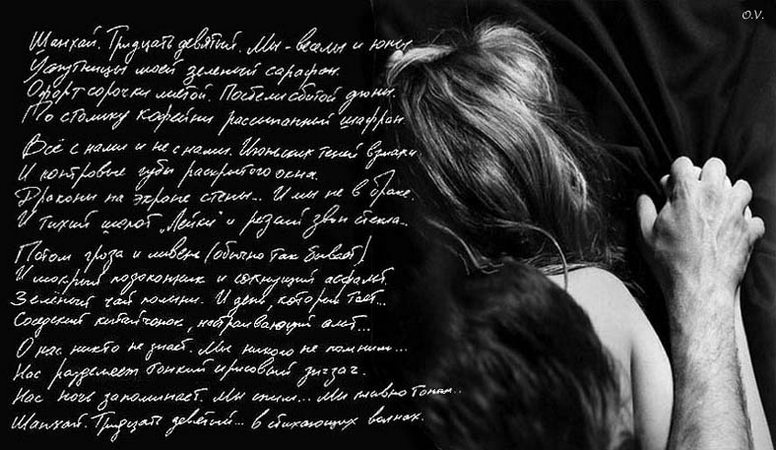 O.V.
Шанхай. Тридцать девятый. Мы - веселы и юны
У спутницы моей зеленый сарафан.
Офорт сорочки мятой. Постели сбитой дюны.
По столику кофейни рассыпанный шафран.
Всё с нами и не с нами. Июньских теней взмахи.
И контровые губы раскрытого окна.
Драконы на экране стены... И мы не в браке.
И тихий шепот „Лейки" и резкий звон стекла...
Потом гроза и ливень (обычно так бывает)
И мокрый подоконник и сохнущий асфальт.
Зелёный чай полыни. И день, который тает...
Соседский китайчонок, настраивающий альт...
О нас никто не знает. Мы никого не помним...
Нас разделяет тонкий ирисовый зигзаг.
Нас ночь запоминает. Мы спим... Мы плавно тонем..
Шанхай. Тридцать девятый... в стихающих волнах.